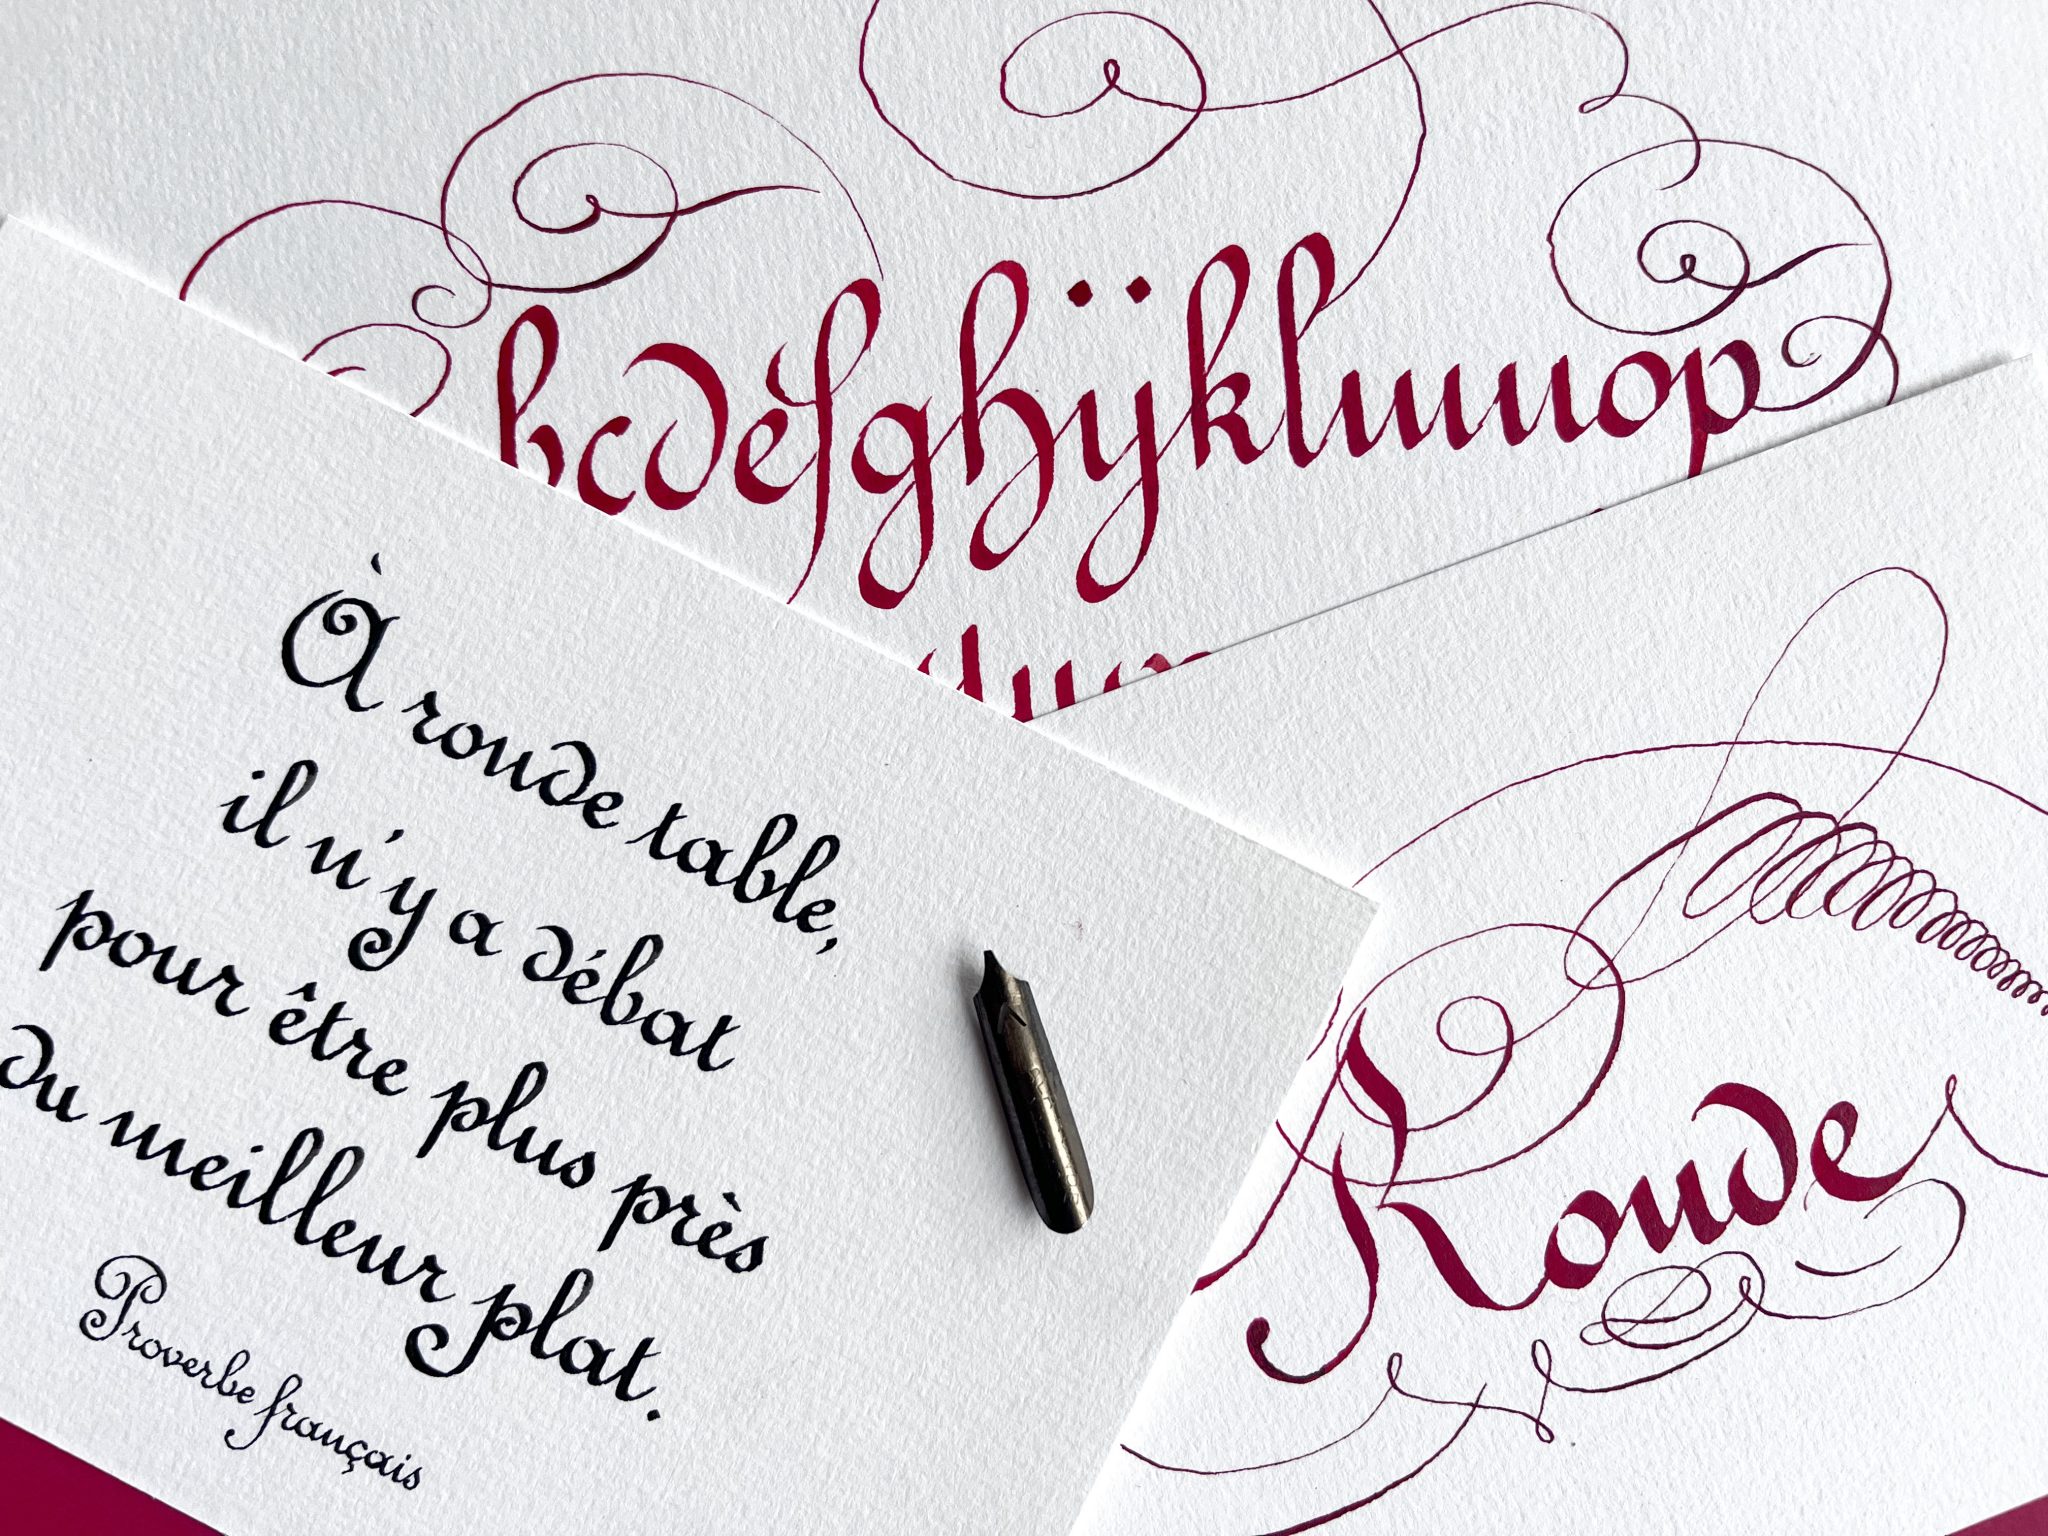 bcdéfghÿklmnop
À ronde table,
il n'y a débat
pour être plus près
du meilleur plat.
Proverbe français
Ronde